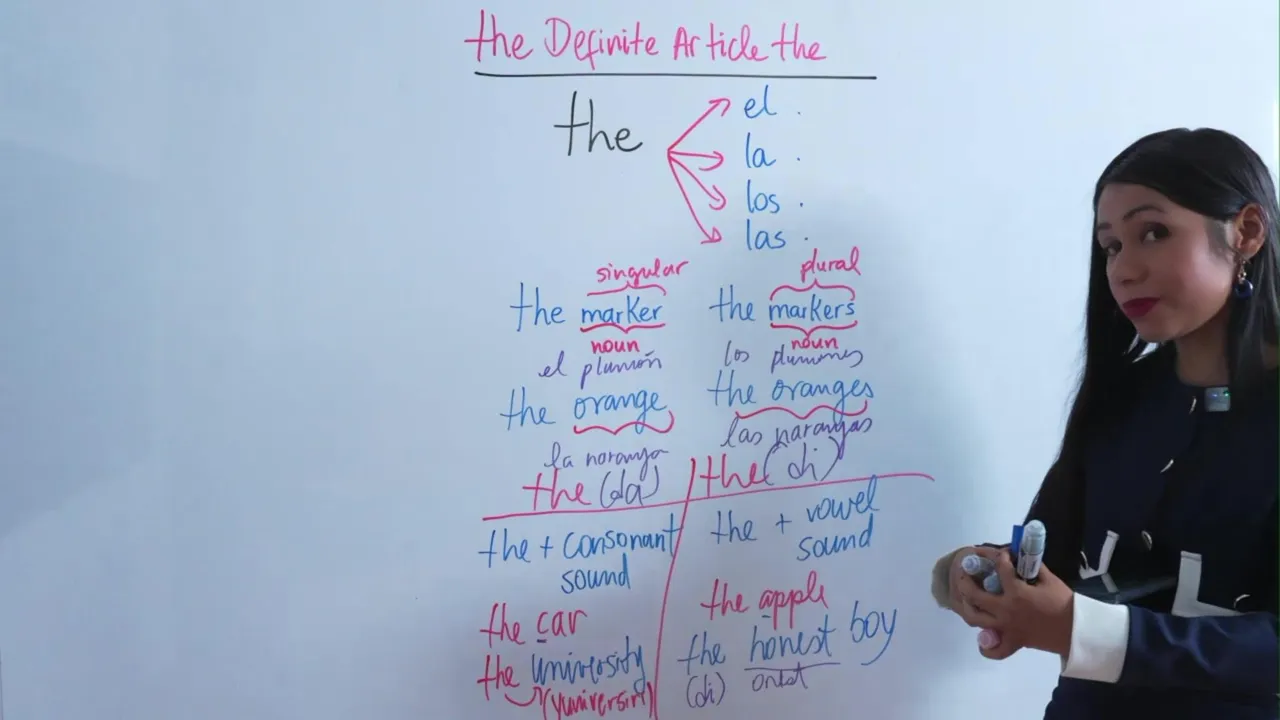 the Definite Article the
the
el .
la .
los .
las .
singular
the marker
noun
el plumón
plural
the markers
noun
los plumones
the orange
la naranja
the oranges
las naranjas
the (da)
the + consonant
sound
the car
the university
(yuniversiri)
the (di)
the + vowel
sound
the apple
the honest boy
(di)